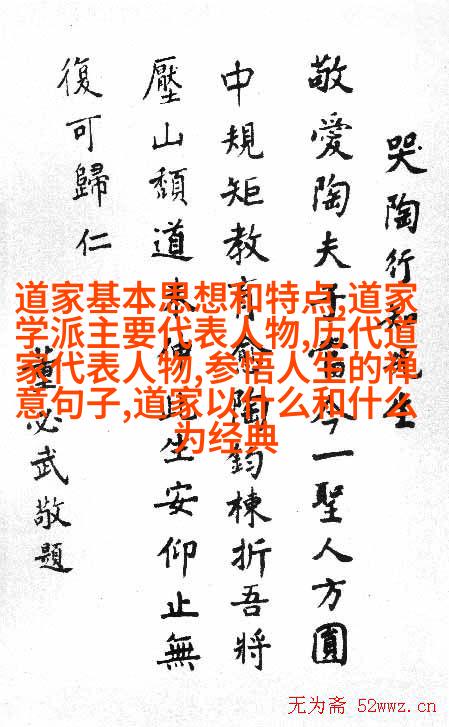 哭陶行知先生
敬愛陶夫子當今一聖人方圓
中規矩教育俞陶鈞棟折吾將
壓山頹道傳此生安仰止無
復可歸仁
董必武敬題
道家基本思想和特点,道家
学派主要代表人物,历代道
家代表人物,参悟人生的禅
意句子,道家以什么和什么
为经典
无为斋 52wwz.cn